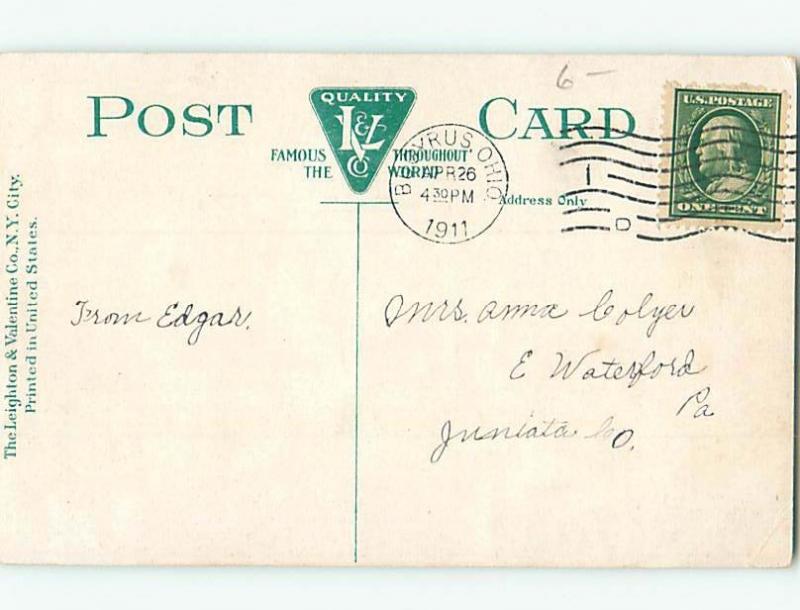 6-
POST CARD
QUALITY
L&V
CO
FAMOUS THROUGHOUT
THE WORLD
BUCYRUS, OHIO
APR 26
4 30 PM
1911
1
D
U.S. POSTAGE
ONE CENT
Address Only
The Leighton & Valentine Co., N.Y. City.
Printed in United States.
From Edgar.
Mrs. Anna Colyer
E Waterford
Pa
Juniata Co.